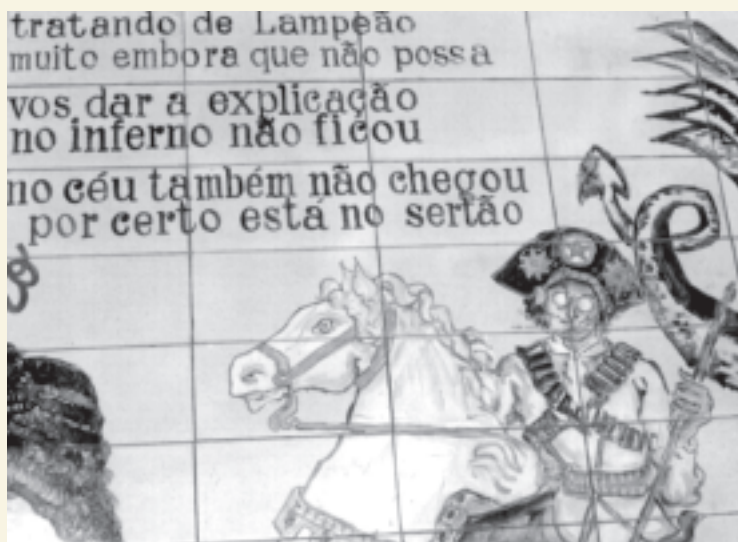 tratando de Lampeão
muito embora que não possa
vos dar a explicação
no inferno não ficou
no céu também não chegou
por certo está no sertão